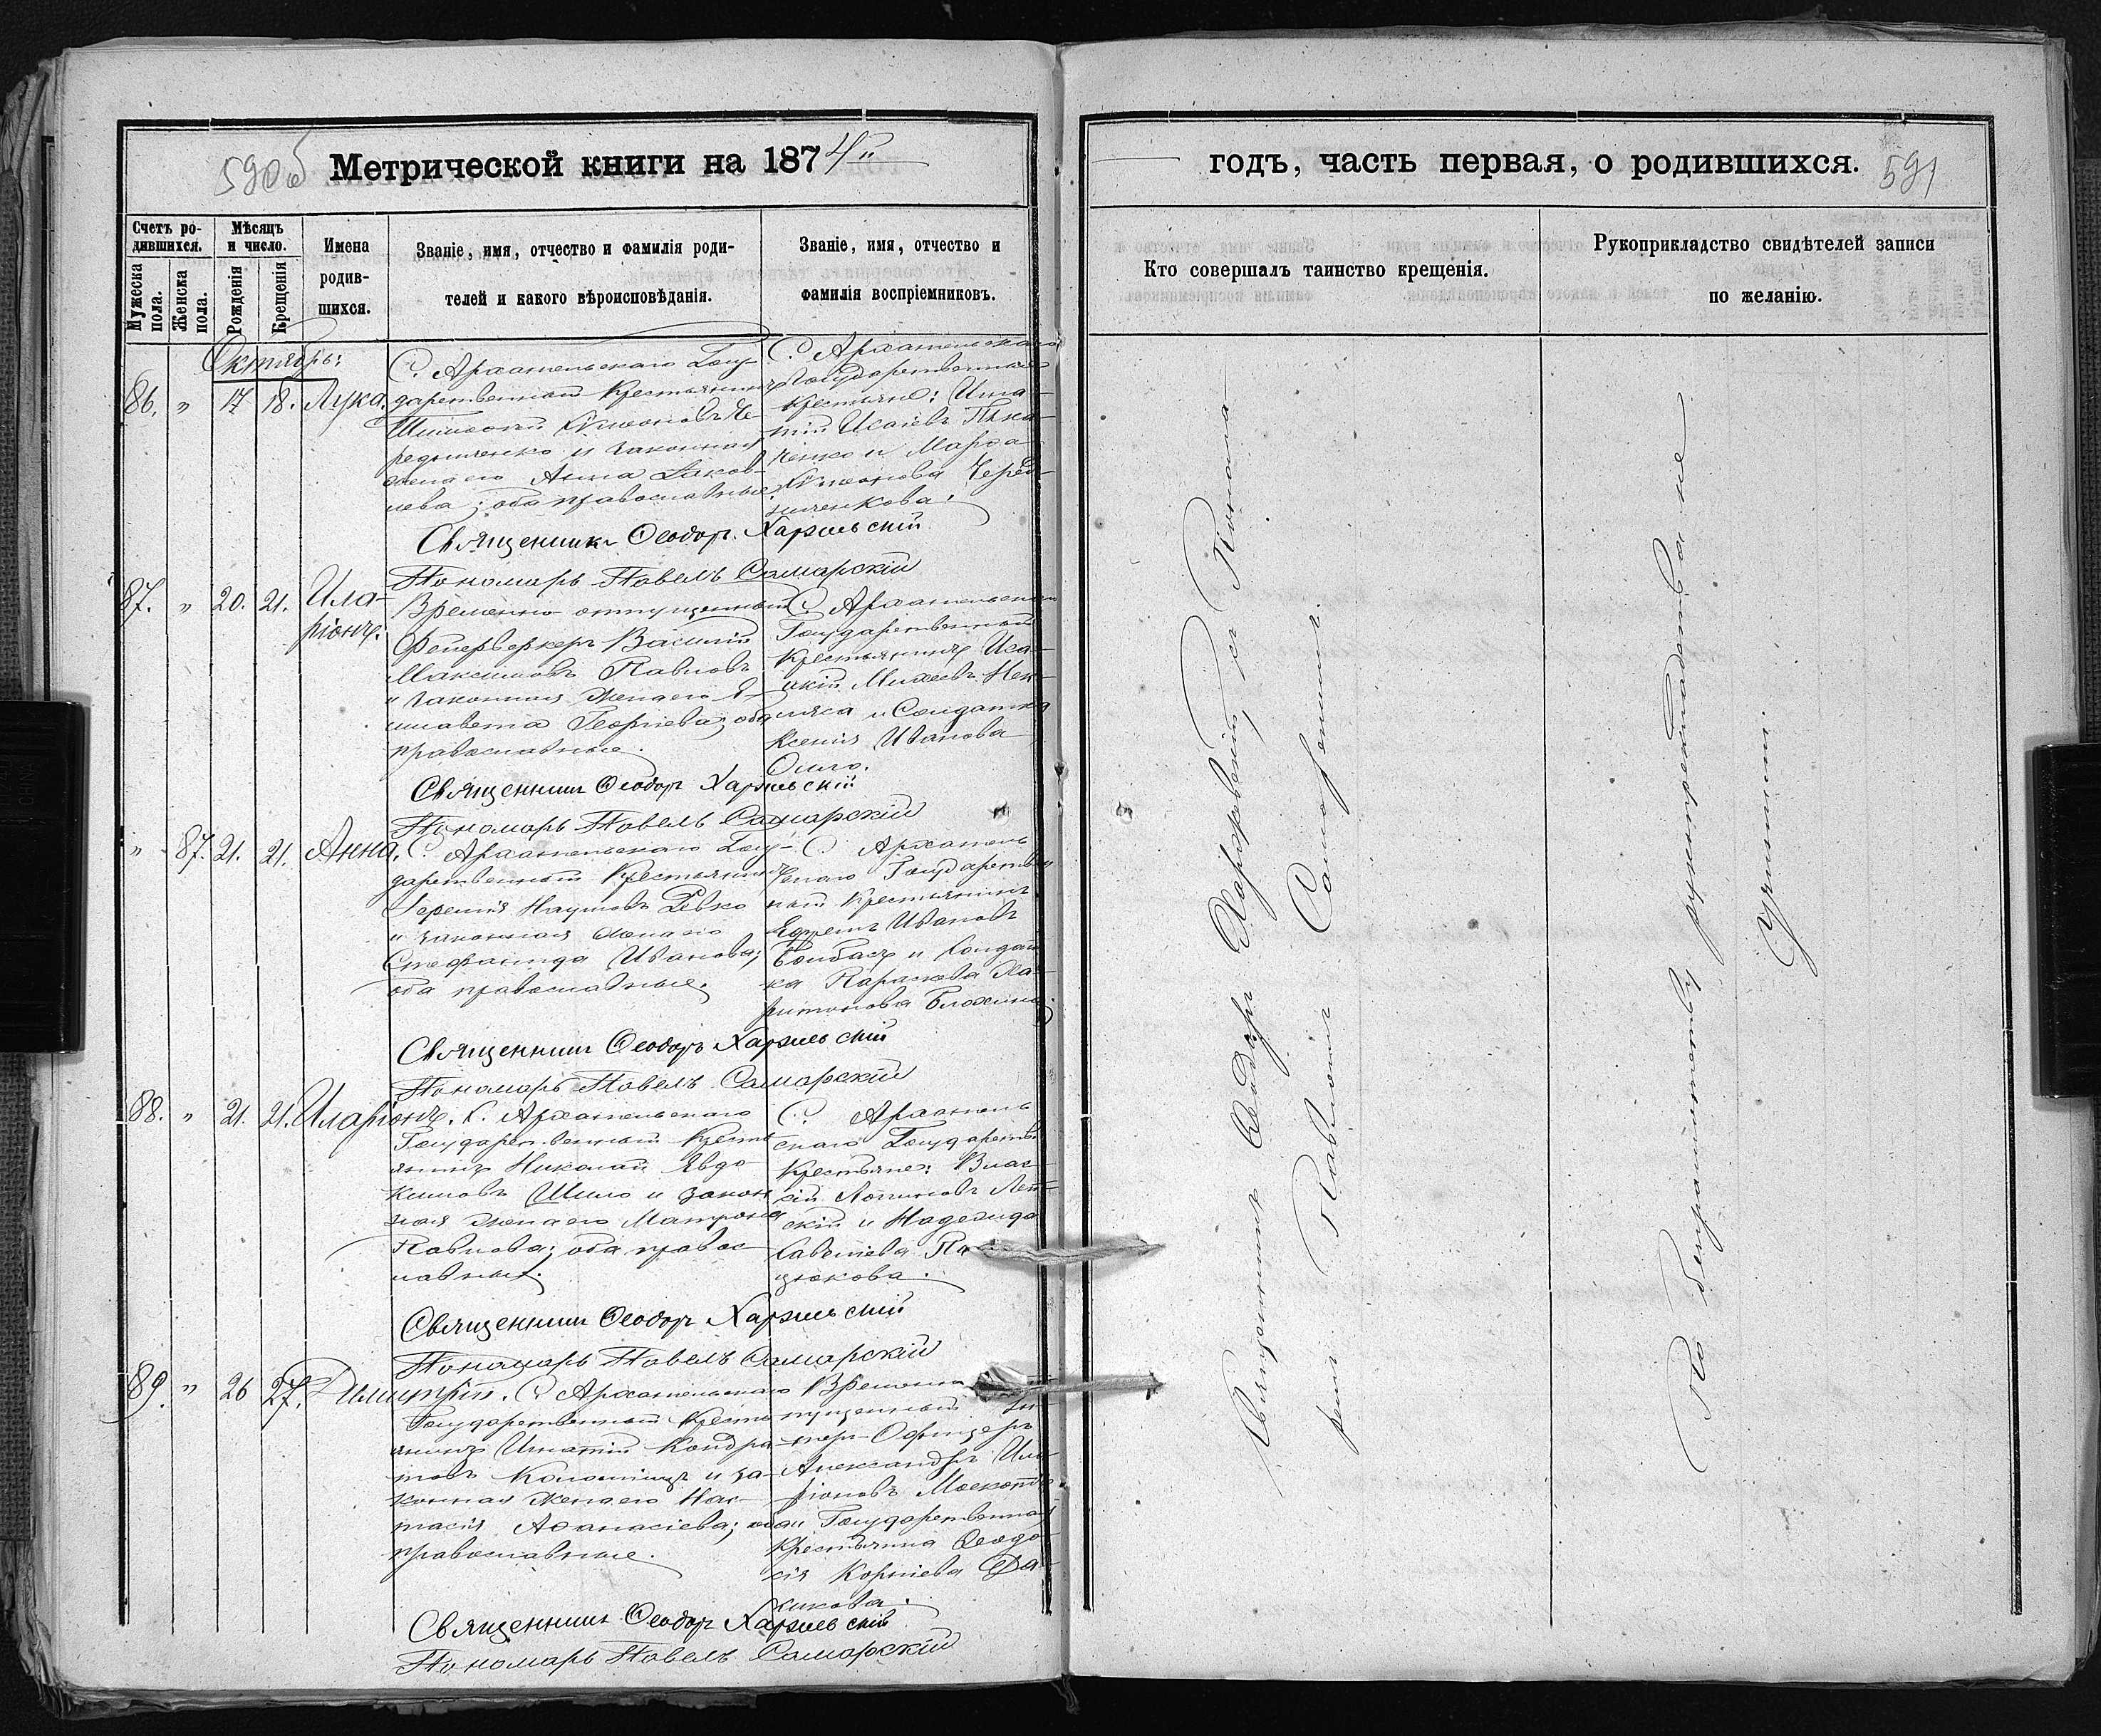 590 об
Метрической книги на 1874й
Счетъ ро-
дившихся.
Мужеска пола.
Женска пола.
Мѣсяцъ
и число.
Рожденія
Крещенія
Имена
родив-
шихся.
Званіе, имя, отчество и фамилія роди-
телей и какого вѣроисповѣданія.
Званіе, имя, отчество и
фамилія воспріемниковъ.
Октябрь:
86. " 17 18. Лука.
С. Архангельскаго Госу-
дарственный Крестьянинъ
Сѵмеоновъ Че-
редниченко и законная
жена его Анна Іаков-
лева; оба православные.
С. Архангельскаго
Государственные
Крестьяне: Игна-
тій Исаіевъ
и Марѳа
Сѵмеонова Черед-
ниченкова.
Священникъ Ѳеодоръ
Пономарь Павелъ Самарскій
87. " 20. 21. Ила-
ріонъ.
Временно отпущенный
Фейерверкеръ Василій
Максимовъ Павловъ
и законная жена его Е-
лисавета Георгіева; оба
православные.
С. Архангельскаго
Государственный
Крестьянинъ Иса-
акій Михеевъ
и Солдатка
Ксенія Иванова
Священникъ Ѳеодоръ
Пономарь Павелъ Самарскій
" 87. 21. 21. Анна.
С. Архангельскаго Госу-
дарственный Крестьянинъ
Іеремія Наумовъ Ревко
и законная жена его
Стефанида Иванова;
оба православные.
С. Архангель-
скаго Государствен-
ный Крестьянинъ
Ефремъ Ивановъ
и Солдат-
ка Параскева Ха-
ритонова Блохина.
Священникъ Ѳеодоръ
Пономарь Павелъ Самарскій
88. " 21. 21. Иларіонъ.
С. Архангельскаго
Государственный Кресть-
янинъ Николай Евдо-
кимовъ Шило и закон-
ная жена его Матрона
Павлова; оба правос-
лавные.
С. Архангель-
скаго Государствен
Крестьяне: Влас-
ій Логиновъ
и Надежда
Савѣліева
Священникъ Ѳеодоръ
Пономарь Павелъ Самарскій
89. " 26 27. Димитрій.
С. Архангельскаго
Государственный Кресть-
янинъ Игнатій Кондра-
товъ Коломіицъ и за-
конная жена его Нас-
тасія Аѳанасіева; оба
православные.
Временно
пущенный Ун-
теръ-Офицеръ
Александръ Ила-
ріоновъ
и Государственная
Крестьянка Ѳеодо-
сія Корніева
Священникъ Ѳеодоръ
Пономарь Павелъ Самарскій
годъ, часть первая, о родившихся.
591
Кто совершалъ таинство крещенія.
Рукоприкладство свидѣтелей записи
по желанію.
Священникъ Ѳеодоръ съ Понома-
ремъ Павломъ Самарскимъ.
По безграмотству рукоприкладства не
учинили.